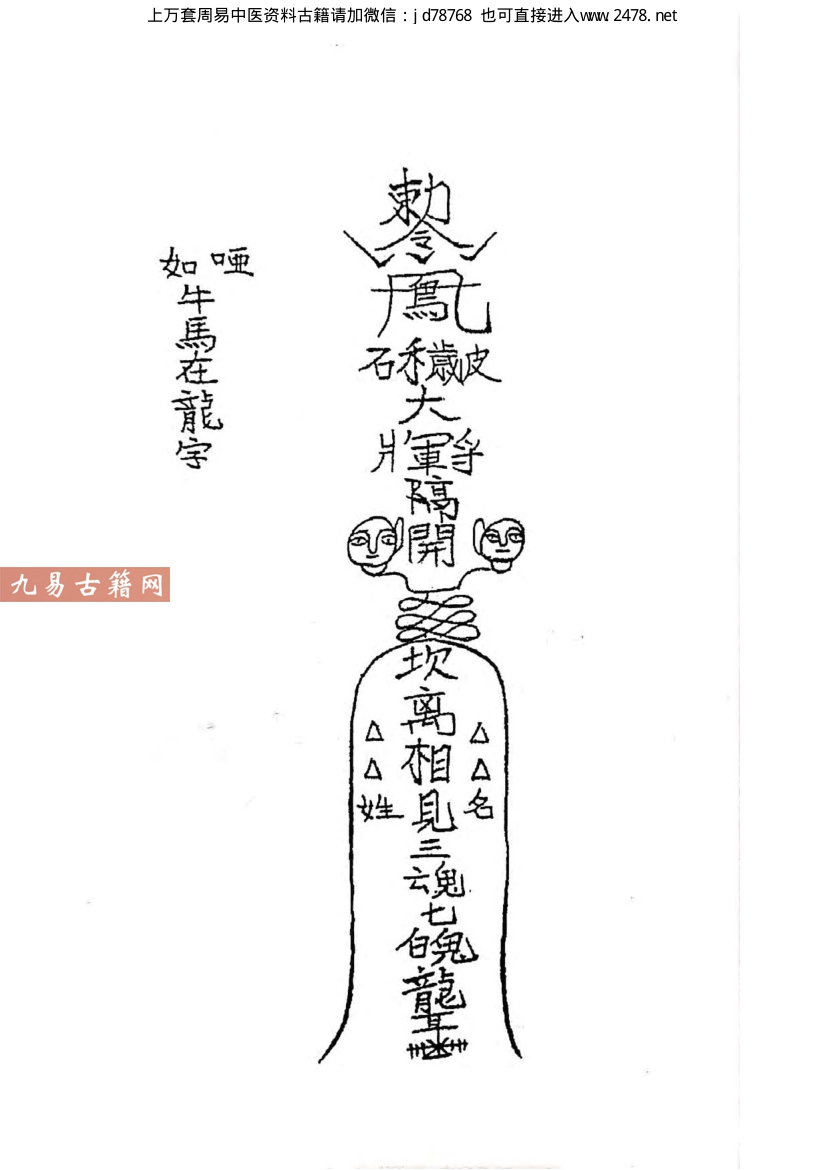 上万套周易中医资料古籍请加微信：jd78768 也可直接进入www.2478.net
勅
令
鳳
石禾歲皮
大
將軍
隔
開
坎
离
相
見
三
魂
七
魄
龍
耳
△△姓
△△名
如啞
牛
馬
在
龍
字
九易古籍网